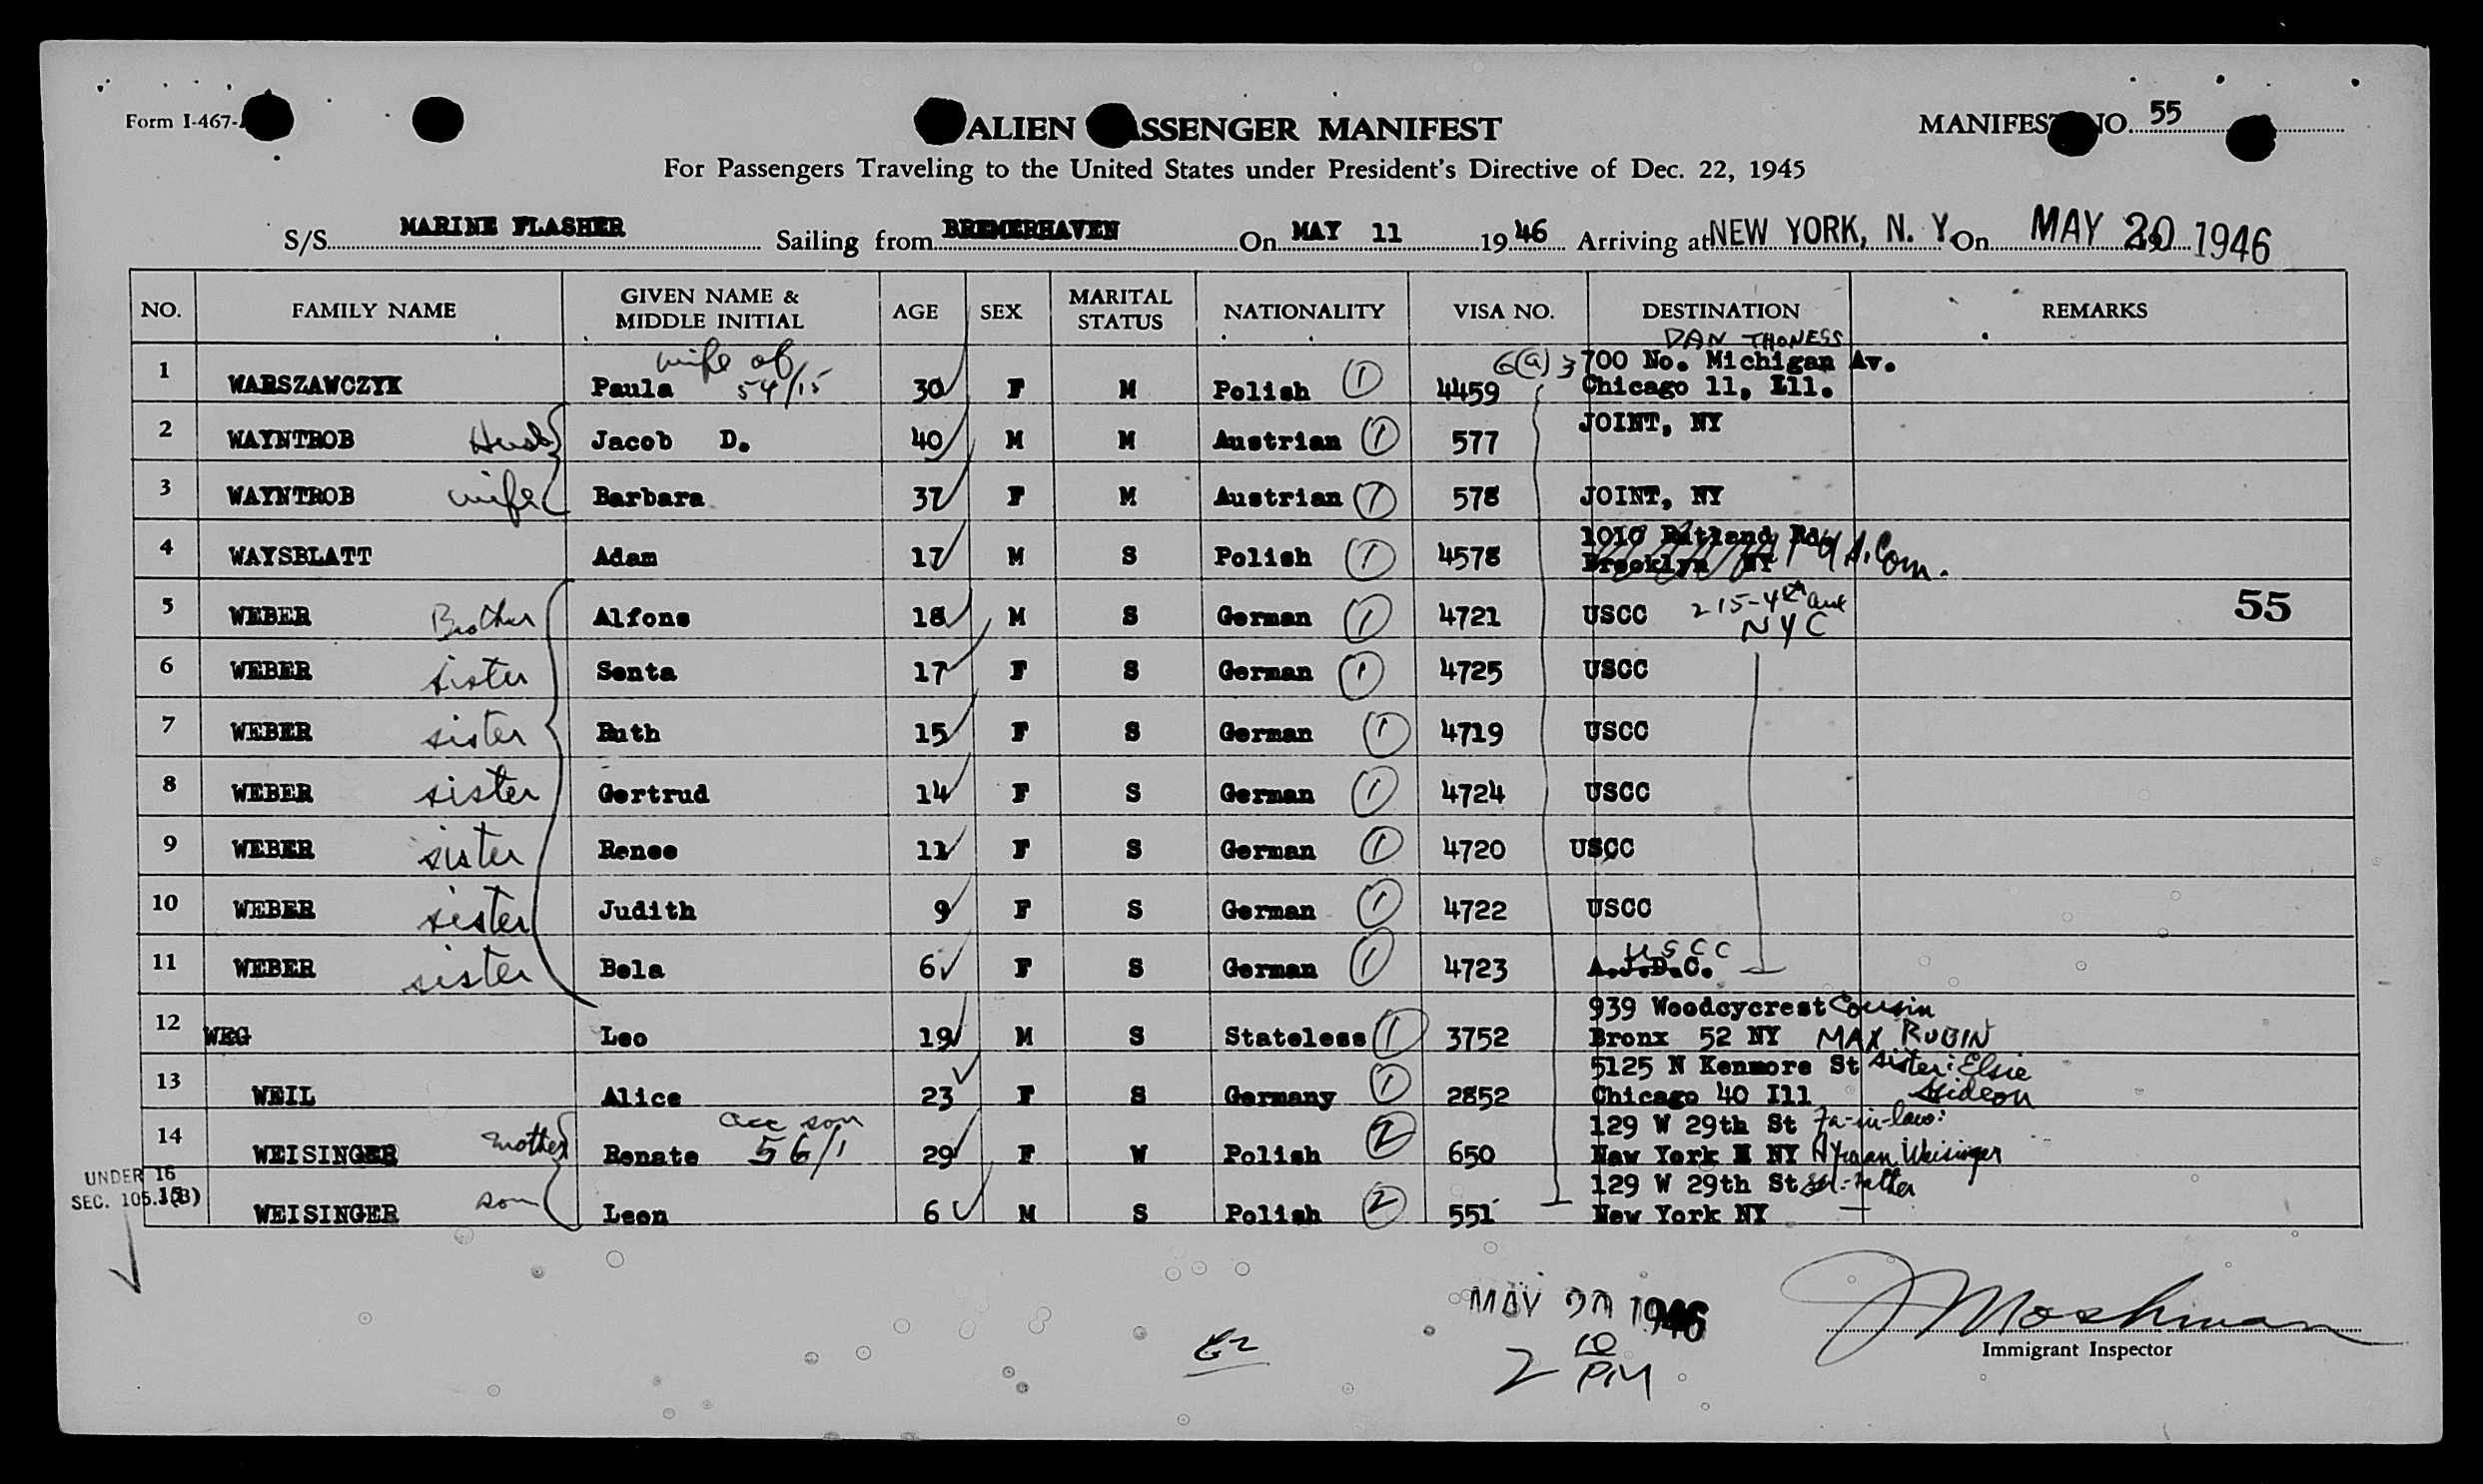 Form I-467-
ALIEN PASSENGER MANIFEST
MANIFEST NO. 55
For Passengers Traveling to the United States under President's Directive of Dec. 22, 1945
S/S MARINE FLASHER Sailing from BREMERHAVEN On MAY 11 1946 Arriving at NEW YORK, N. Y. On MAY 20 1946
NO. FAMILY NAME GIVEN NAME & MIDDLE INITIAL AGE SEX MARITAL STATUS NATIONALITY VISA NO. DESTINATION REMARKS
DAN THONESS
wife of 6(a)3 700 No. Michigan Av.
1 WARSZAWCZYK Paula 54/15 30 F M Polish 1 4459 Chicago 11, Ill.
2 WAYNTROB Husb Jacob D. 40 M M Austrian 1 577 JOINT, NY
3 WAYNTROB wife Barbara 37 F M Austrian 1 578 JOINT, NY
1010 Rutland Rd
4 WAYSBLATT Adam 17 M S Polish 1 4578 Brooklyn NY
55
5 WEBER Brother Alfons 18 M S German 1 4721 USCC 215-4th ave
NYC
6 WEBER sister Senta 17 F S German 1 4725 USCC
7 WEBER sister Ruth 15 F S German 1 4719 USCC
8 WEBER sister Gertrud 14 F S German 1 4724 USCC
9 WEBER sister Renee 11 F S German 1 4720 USCC
10 WEBER sister Judith 9 F S German 1 4722 USCC
USCC
11 WEBER sister Bela 6 F S German 1 4723 A.J.D.C.
939 Woodcycrest Cousin
12 WEG Leo 19 M S Stateless 1 3752 Bronx 52 NY MAX RUBIN
5125 N Kenmore St Sister: Elsie
13 WEIL Alice 23 F S Germany 1 2852 Chicago 40 Ill Gideon
acc son 129 W 29th St Fa-in-law:
14 WEISINGER mother Renate 56/1 29 F W Polish 2 650 New York N NY Hyman Weisinger
UNDER 16 129 W 29th St
SEC. 105.3(B)
15 WEISINGER son Leon 6 M S Polish 2 551 New York NY
MAY 20 1946
2 10 PM
J Moshman
Immigrant Inspector